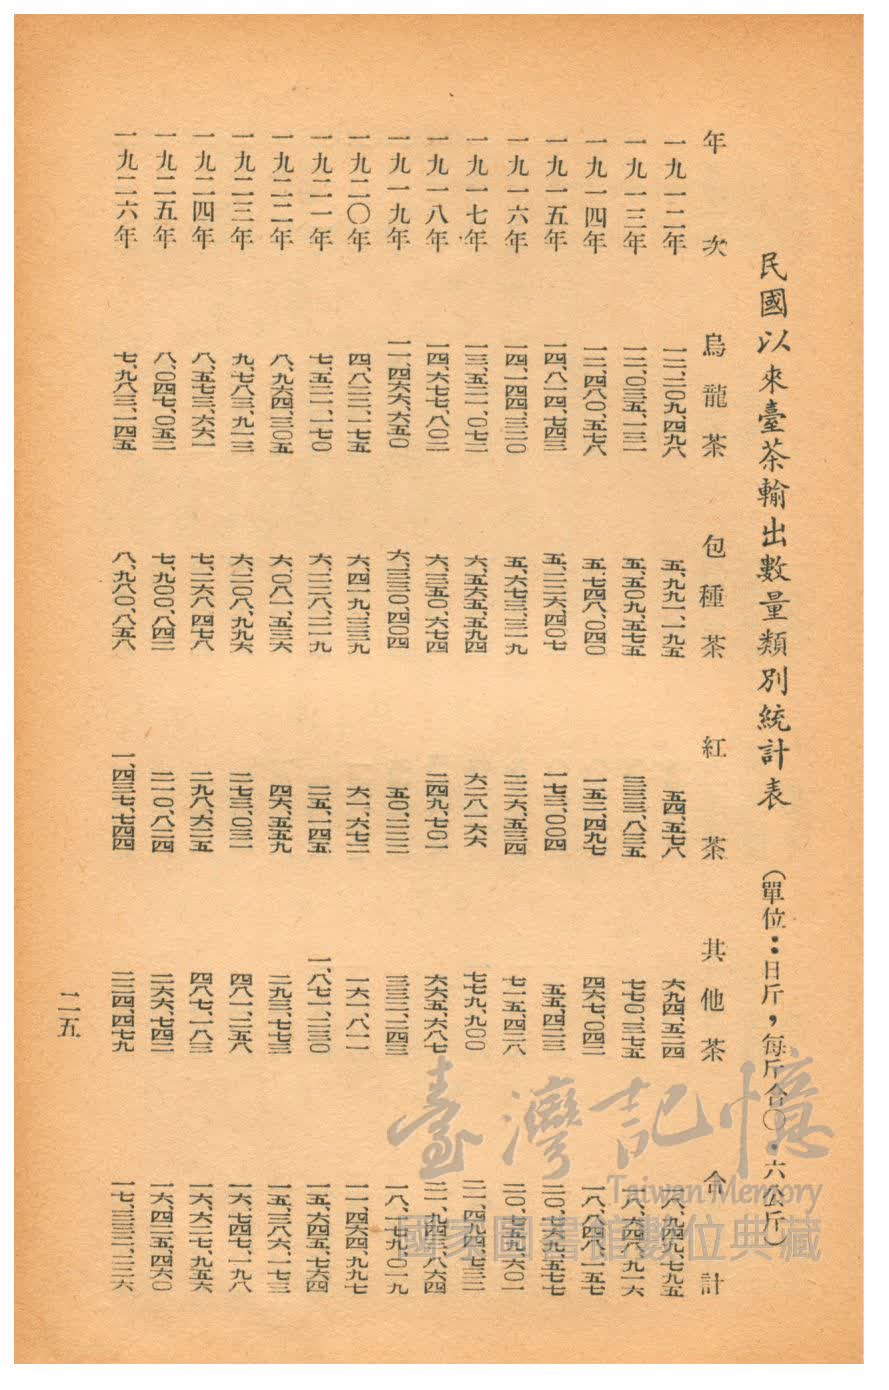 民國以來臺茶輸出數量類別統計表 （單位：日斤，每斤合〇．六公斤）
年次 烏龍茶 包種茶 紅茶 其他茶 合計
一九一二年 一二、二〇九、四九八 五、九九一、一九五 五四、五七八 六九四、五二四 一八、九四九、七九五
一九一三年 一二、〇三五、一三一 五、五〇九、五七五 三三三、八三五 七七〇、三七五 一八、六四八、九一六
一九一四年 一二、四八〇、五七八 五、七四八、〇四〇 一五二、四九七 四六七、〇四二 一八、八四八、一五七
一九一五年 一四、八一四、七四三 五、二二六、四〇七 一七三、〇〇四 五五、四二三 二〇、七六九、五七七
一九一六年 一四、一四四、三二〇 五、六七三、三一九 二二六、五三四 七一五、四二八 二〇、七五九、六〇一
一九一七年 一三、五二一、〇七二 六、五六五、五九四 六二八、一六六 七七九、九〇〇 二一、四九四、七三二
一九一八年 一四、六七七、八〇二 六、三五〇、六七四 二四九、七〇一 六六五、六八七 二一、九四三、八六四
一九一九年 一一、四六六、六五〇 六、三三〇、四〇四 五〇、二二二 三三二、二四三 一八、一七九、〇一九
一九二〇年 四、八二二、一七五 六、四一九、三三九 六一、六七二 一六一、八一一 一一、四六四、九九七
一九二一年 七、五二一、一七〇 六、二二八、二一九 二五、一四五 一、八七一、二三〇 一五、六四五、七六四
一九二二年 八、九六四、三〇五 六、〇八一、五三六 四六、五五九 二九三、七七三 一五、三八六、一七三
一九二三年 九、七八三、九一三 六、二〇八、九九六 二七三、〇三一 四八一、二五八 一六、七四七、一九八
一九二四年 八、五七三、六六一 七、二六八、四七八 二九八、六二五 四八七、一八三 一六、六二七、九五六
一九二五年 八、〇四七、〇五二 七、九〇〇、八四二 二一〇、八二四 二六六、七四二 一六、四二五、四六〇
一九二六年 七、九八三、一四五 八、九八〇、八五八 一、四三七、七四四 二二四、四七九 一七、三三二、二二六
二五
臺灣記憶
Taiwan Memory
國家圖書館數位典藏